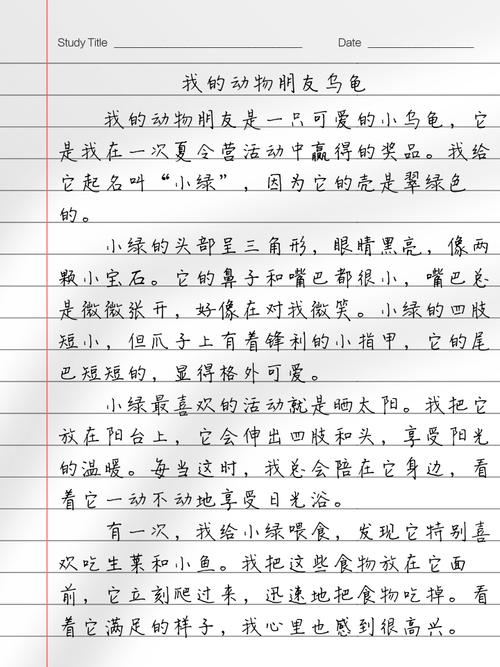 Study Title Date
我的动物朋友乌龟
我的动物朋友是一只可爱的小乌龟，它
是我在一次夏令营活动中赢得的奖品。我给
它起名叫“小绿”，因为它的壳是翠绿色
的。
小绿的头部呈三角形，眼睛黑亮，像两
颗小宝石。它的鼻子和嘴巴都很小，嘴巴总
是微微张开，好像在对我微笑。小绿的四肢
短小，但爪子上有着锋利的小指甲，它的尾
巴短短的，显得格外可爱。
小绿最喜欢的活动就是晒太阳。我把它
放在阳台上，它会伸出四肢和头，享受阳光
的温暖。每当这时，我总会陪在它身边，看
着它一动不动地享受日光浴。
有一次，我给小绿喂食，发现它特别喜
欢吃生菜和小鱼。我把这些食物放在它面
前，它立刻爬过来，迅速地把食物吃掉。看
着它满足的样子，我心里也感到很高兴。